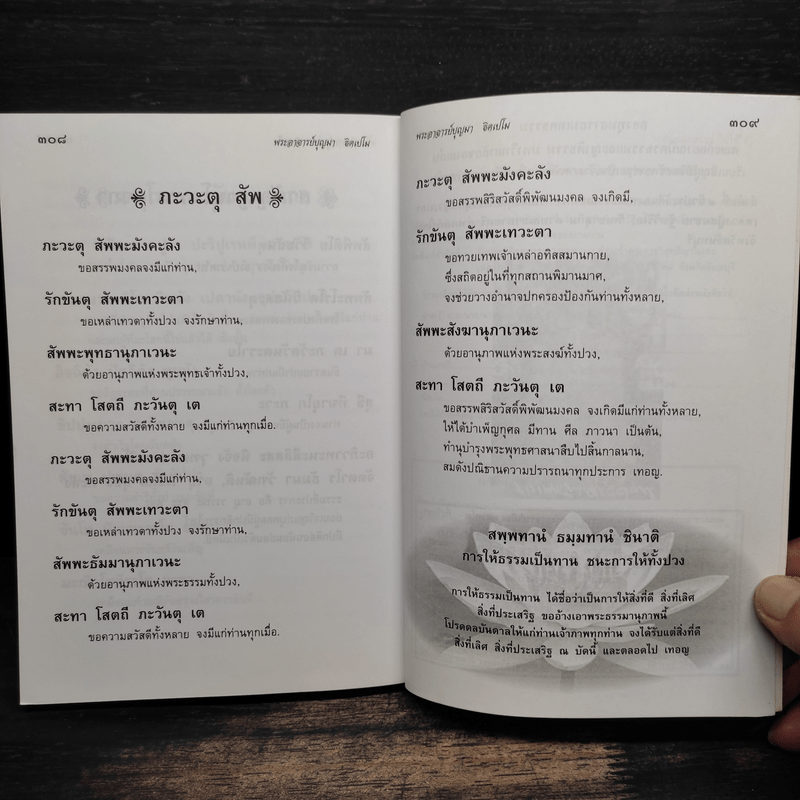 ๓๐๘
พระอาจารย์บุญมา อิคเปโม
ภะวะตุ สัพ
ภะวะตุ สัพพะมังคะลัง
ขอสรรพมงคลจงมีแก่ท่าน,
รักขันตุ สัพพะเทวะตา
ขอเหล่าเทวดาทั้งปวง จงรักษาท่าน,
สัพพะพุทธานุภาเวนะ
ด้วยอานุภาพแห่งพระพุทธเจ้าทั้งปวง,
สะทา โสตถี ภะวันตุ เต
ขอความสวัสดีทั้งหลาย จงมีแก่ท่านทุกเมื่อ.
ภะวะตุ สัพพะมังคะลัง
ขอสรรพมงคลจงมีแก่ท่าน,
รักขันตุ สัพพะเทวะตา
ขอเหล่าเทวดาทั้งปวง จงรักษาท่าน,
สัพพะธัมมานุภาเวนะ
ด้วยอานุภาพแห่งพระธรรมทั้งปวง,
สะทา โสตถี ภะวันตุ เต
ขอความสวัสดีทั้งหลาย จงมีแก่ท่านทุกเมื่อ.
พระอาจารย์บุญมา อิคเปโม
๓๐๙
ภะวะตุ สัพพะมังคะลัง
ขอสรรพสิริสวัสดิ์พิพัฒนมงคล จงเกิดมี,
รักขันตุ สัพพะเทวะตา
ขอทวยเทพเจ้าเหล่าอทิสสมานกาย,
ซึ่งสถิตอยู่ในที่ทุกสถานพิมานมาศ,
จงช่วยวางอำนาจปกครองป้องกันท่านทั้งหลาย,
สัพพะสังฆานุภาเวนะ
ด้วยอานุภาพแห่งพระสงฆ์ทั้งปวง,
สะทา โสตถี ภะวันตุ เต
ขอสรรพสิริสวัสดิ์พิพัฒนมงคล จงเกิดมีแก่ท่านทั้งหลาย,
ให้ได้บำเพ็ญกุศล มีทาน ศีล ภาวนา เป็นต้น,
ทำนุบำรุงพระพุทธศาสนาสืบไปสิ้นกาลนาน,
สมดังปณิธานความปรารถนาทุกประการ เทอญ.
สพฺพทานํ ธมฺมทานํ ชินาติ
การให้ธรรมเป็นทาน ชนะการให้ทั้งปวง
การให้ธรรมเป็นทาน ได้ชื่อว่าเป็นการให้สิ่งที่ดี สิ่งที่เลิศ
สิ่งที่ประเสริฐ ขออ้างเอาพระธรรมานุภาพนี้
โปรดดลบันดาลให้แก่ท่านเจ้าภาพทุกท่าน จงได้รับแต่สิ่งที่ดี
สิ่งที่เลิศ สิ่งที่ประเสริฐ ณ บัดนี้ และตลอดไป เทอญ